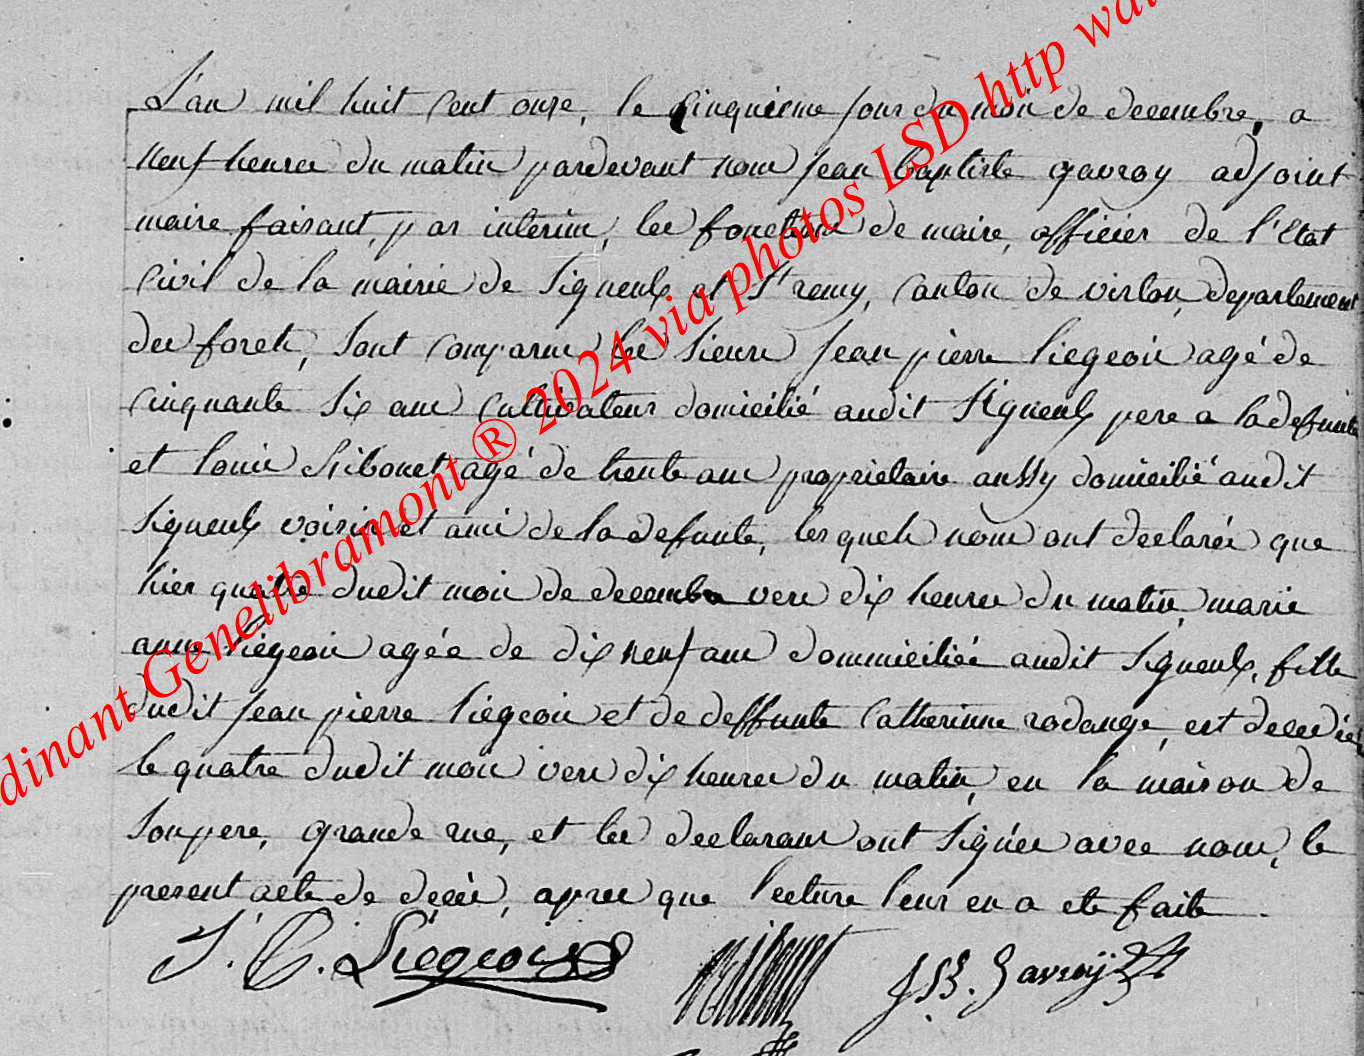 L'an mil huit cent onze, le cinquieme jour du mois de decembre, a
neuf heures du matin pardevant nous jean baptiste gavroy adjoint
maire faisant, par interim, les fonctions de maire, officier de l'Etat
Civil de la mairie de Signeulx et St remy, Canton de virton, departement
des forets, Sont Comparus les Sieurs jean pierre Liegeois agé de
cinquante Six ans Cultivateur domicilié audit Signeulx pere a la defunte
et Louis agé de trente ans proprietaire aussy domicilié audit
Signeulx voisin et ami de la defunte, lesquels nous ont declarés que
hier quatre dudit mois de decembre vers dix heures du matin, marie
anne Liegeois agée de dix neuf ans dommiciliée audit Signeulx, fille
dudit jean pierre Liegeois et de deffunte Catherinne rodange, est decedée
le quatre dudit mois vers dix heures du matin, en la maison de
Son pere, grande rue, et les declarans ont Signés avec nous, le
present acte de décés, apres que lecture leur en a ete faite.
J. P. Liegeois J B. Gavroÿ
dinant Genelibramont ® 2024 via photos LSD http wa